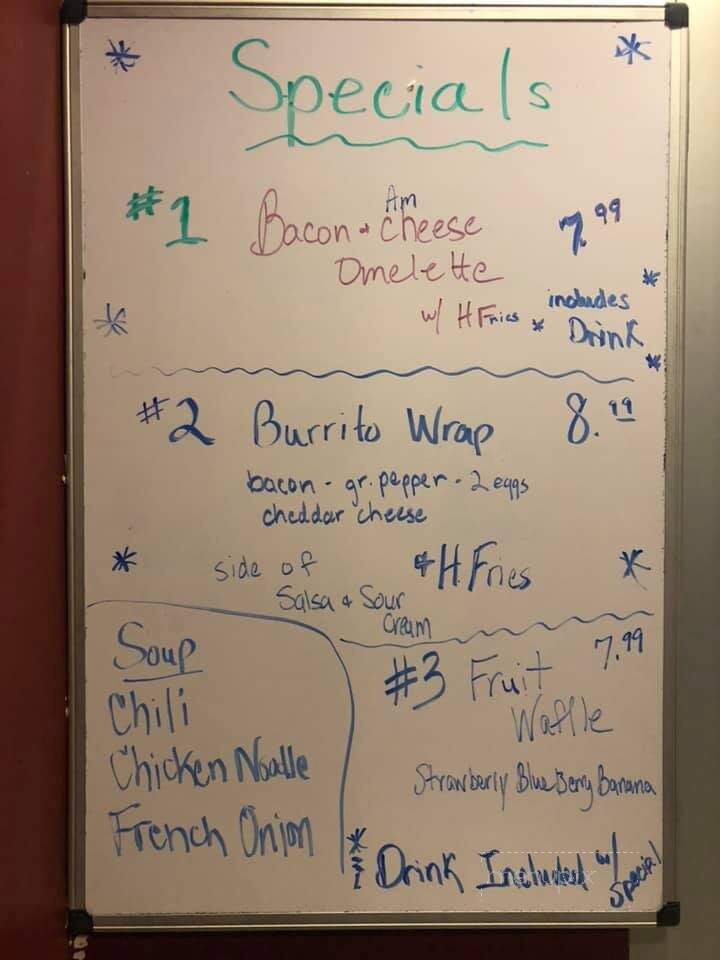 Specials
#1 Bacon & Am cheese 7.99
Omelette
w/ H Fries * includes
Drink
#2 Burrito Wrap 8.99
bacon - gr. pepper - 2 eggs
cheddar cheese
side of & H.Fries
Salsa & Sour
Cream
Soup
Chili
Chicken Noodle
French Onion
#3 Fruit 7.99
Waffle
Strawberry Blue Berry Banana
* Drink Included w/
Special